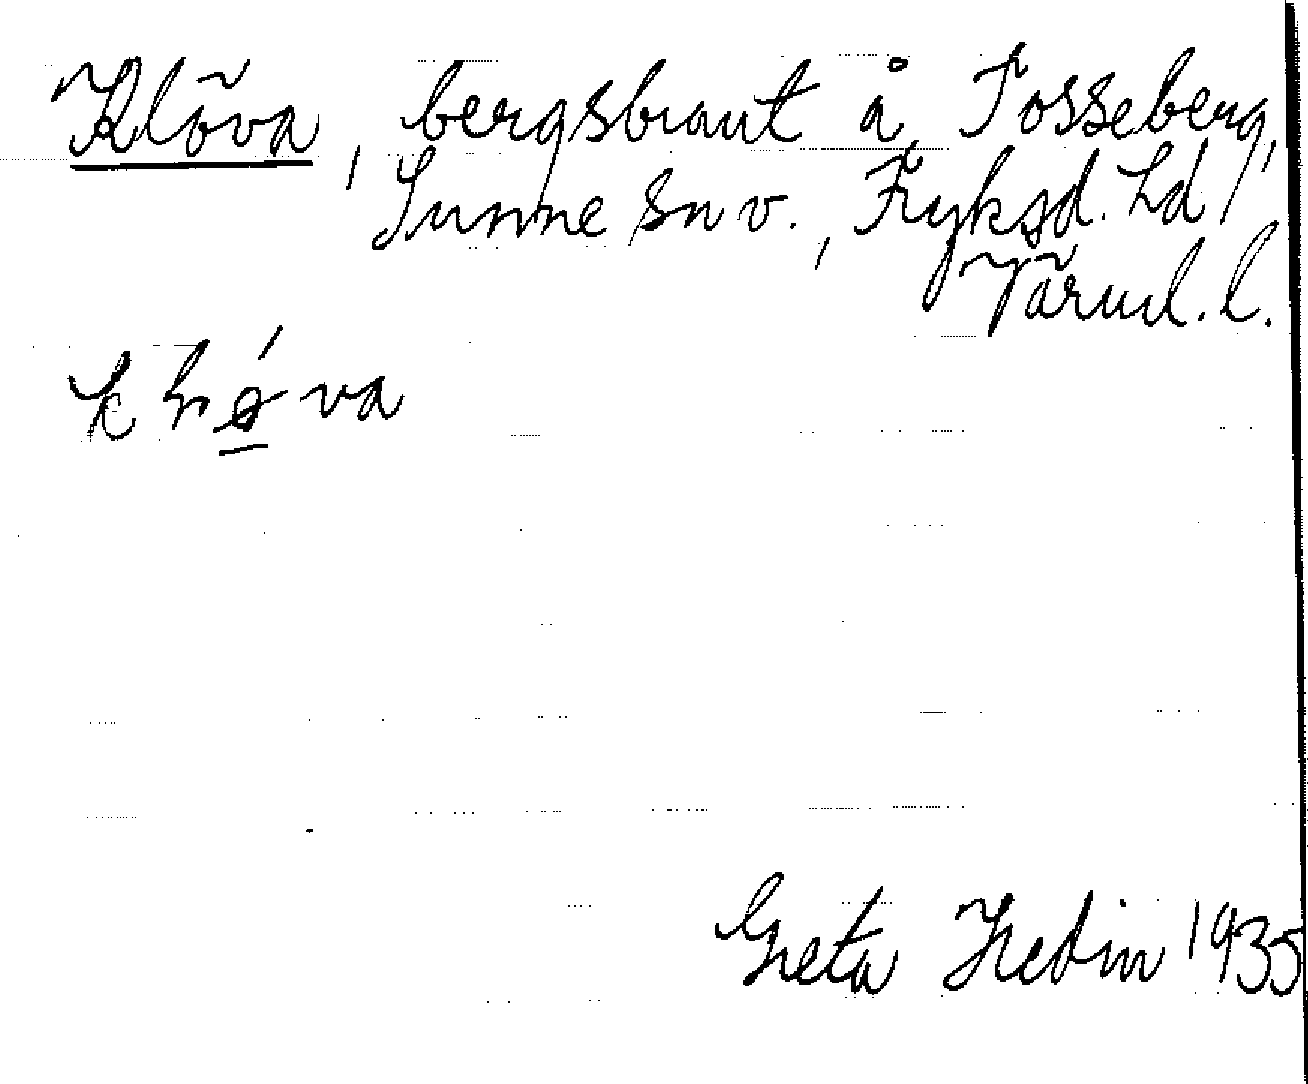 Klõva, bergsbrant å Fosseberg,
Sunne sn v., Fryksd. hd,
Värml. l.
Greta Hedin 1935